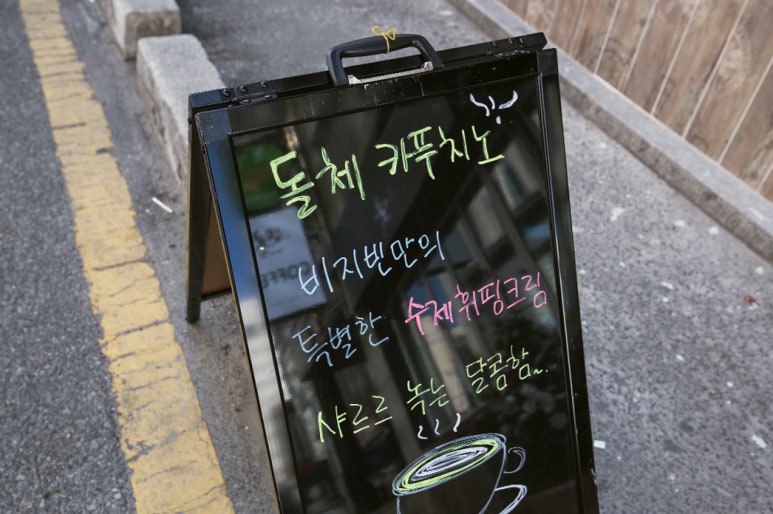 돌체 카푸치노
비지빈만의
특별한 수제휘핑크림
샤르르 녹는 달콤함~
COFFE